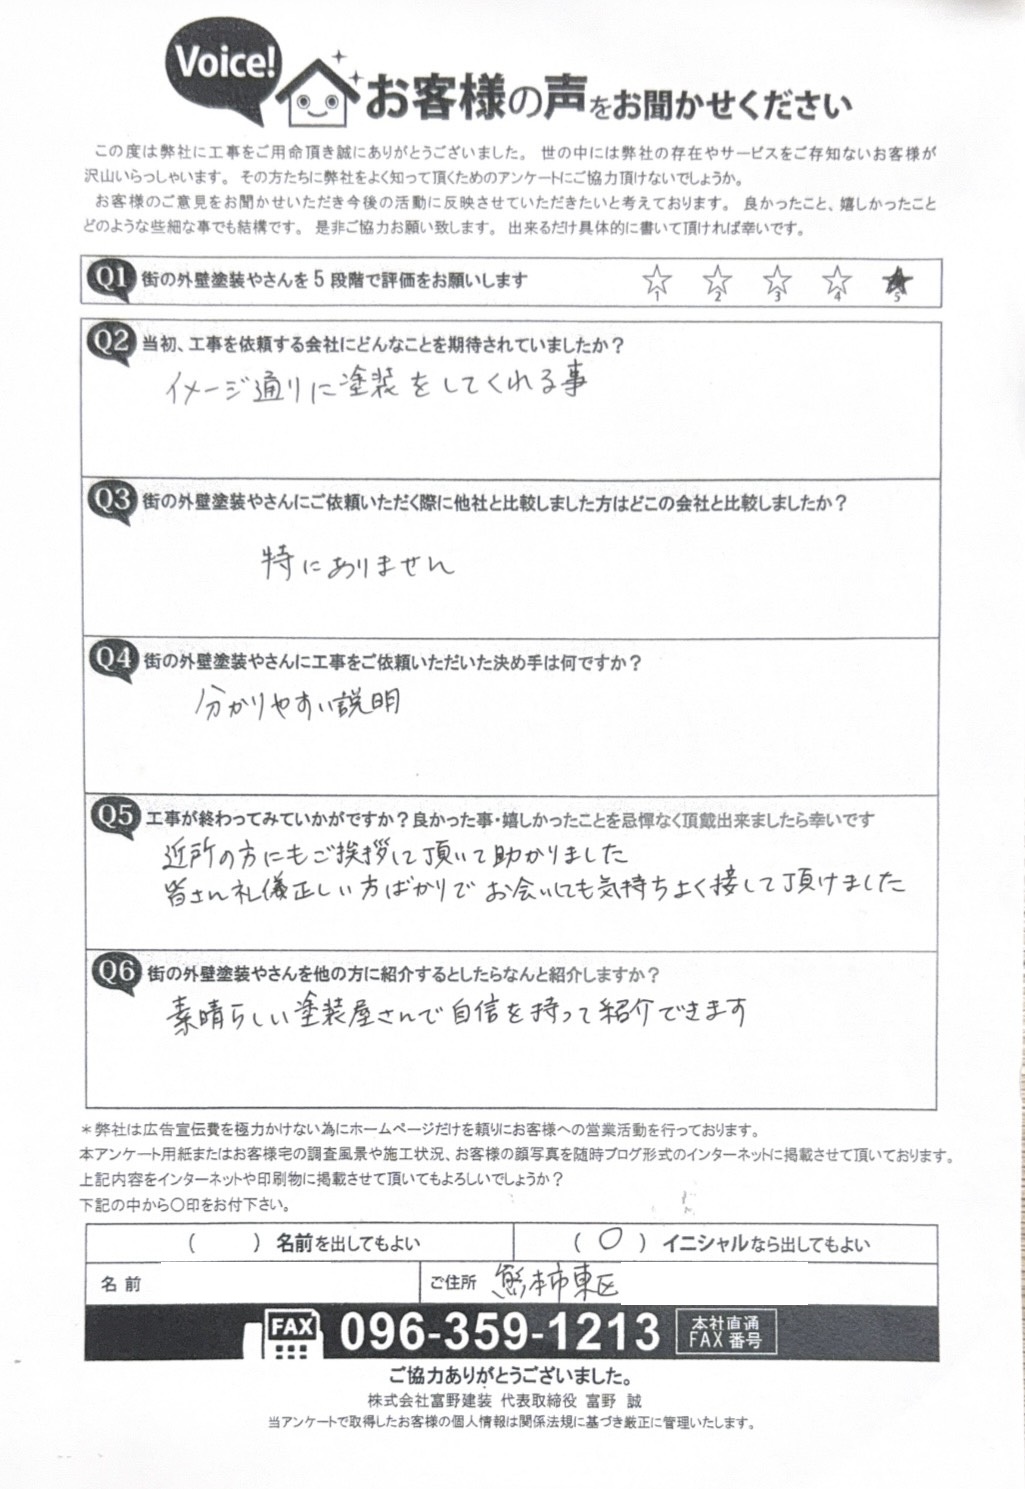 Voice!
お客様の声をお聞かせください
この度は弊社に工事をご用命頂き誠にありがとうございました。 世の中には弊社の存在やサービスをご存知ないお客様が
沢山いらっしゃいます。 その方たちに弊社をよく知って頂くためのアンケートにご協力頂けないでしょうか。
お客様のご意見をお聞かせいただき今後の活動に反映させていただきたいと考えております。 良かったこと、嬉しかったこと
どのような些細な事でも結構です。 是非ご協力お願い致します。 出来るだけ具体的に書いて頂ければ幸いです。
Q1 街の外壁塗装やさんを5段階で評価をお願いします
1 2 3 4 5
Q2 当初、工事を依頼する会社にどんなことを期待されていましたか？
イメージ通りに塗装をしてくれる事
Q3 街の外壁塗装やさんにご依頼いただく際に他社と比較しました方はどこの会社と比較しましたか？
特にありません
Q4 街の外壁塗装やさんに工事をご依頼いただいた決め手は何ですか？
分かりやすい説明
Q5 工事が終わってみていかがですか？良かった事・嬉しかったことを忌憚なく頂戴出来ましたら幸いです
近所の方にもご挨拶して頂いて助かりました
皆さん礼儀正しい方ばかりでお会いしても気持ちよく接して頂けました
Q6 街の外壁塗装やさんを他の方に紹介するとしたらなんと紹介しますか？
素晴らしい塗装屋さんで自信を持って紹介できます
＊弊社は広告宣伝費を極力かけない為にホームページだけを頼りにお客様への営業活動を行っております。
本アンケート用紙またはお客様宅の調査風景や施工状況、お客様の顔写真を随時ブログ形式のインターネットに掲載させて頂いております。
上記内容をインターネットや印刷物に掲載させて頂いてもよろしいでしょうか？
下記の中から〇印をお付下さい。
（　　）名前を出してもよい （ 〇 ）イニシャルなら出してもよい
名前 ご住所 熊本市東区
FAX 096-359-1213 本社直通
FAX番号
ご協力ありがとうございました。
株式会社富野建装 代表取締役 富野 誠
当アンケートで取得したお客様の個人情報は関係法規に基づき厳正に管理いたします。